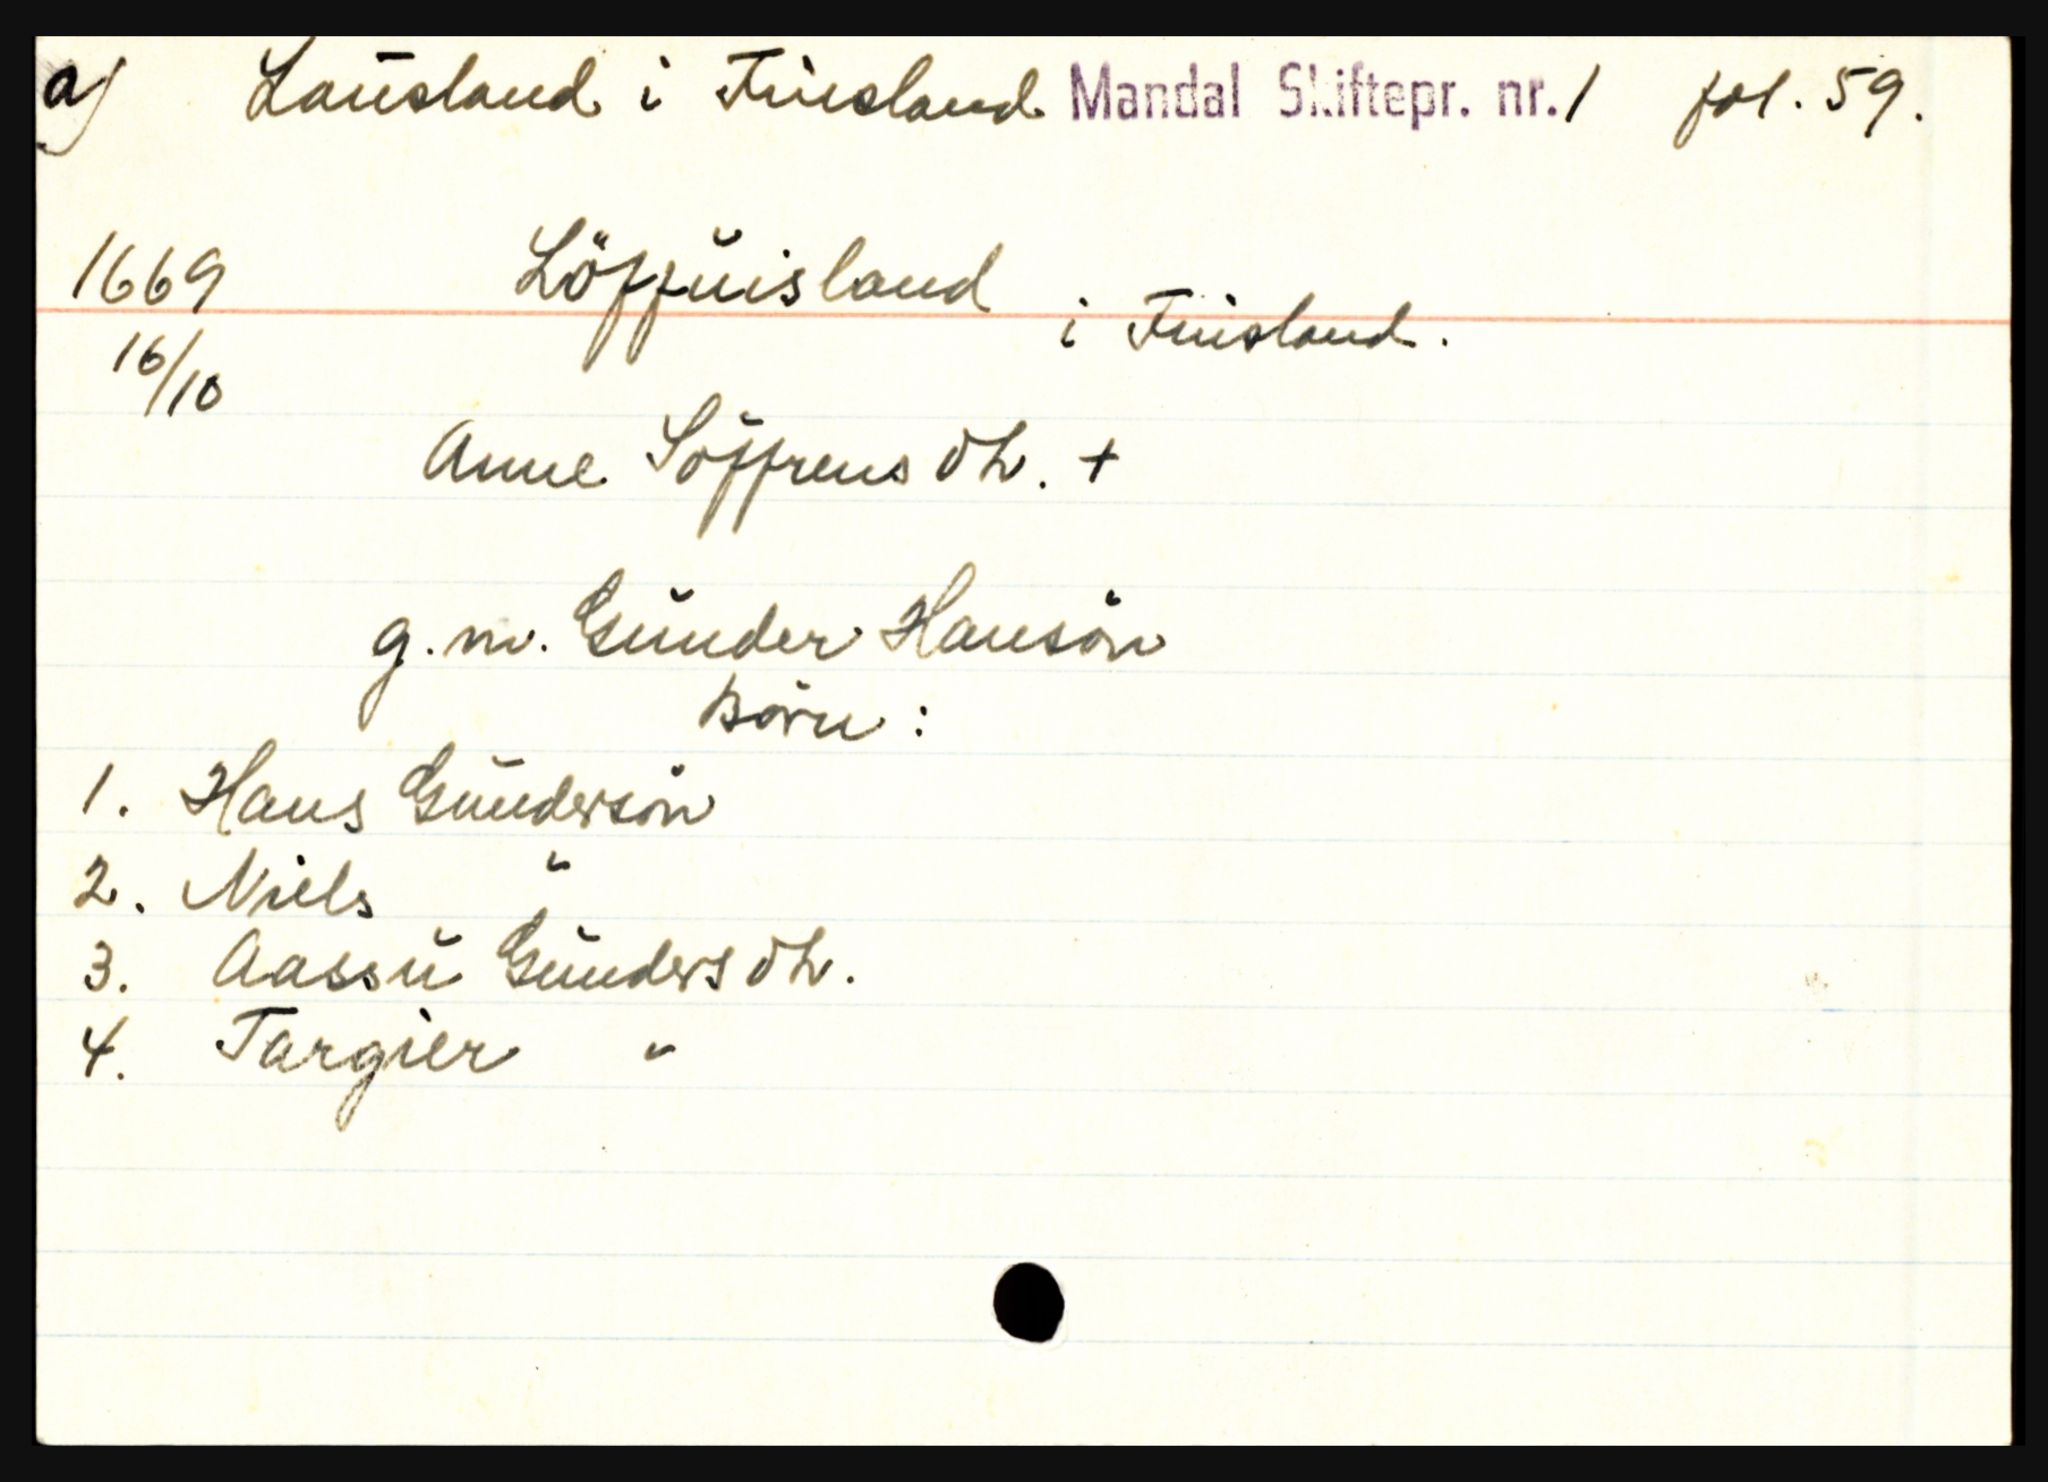 a) Lausland i Finsland Mandal Skiftepr. nr. 1 fol. 59.
1669 Löffuisland i Finsland.
16/10
Anne Söffrensdtr. +
g. m. Gunder Hansön
Börn:
1. Hans Gundersön
2. Niels "
3. Aassu Gundersdtr.
4. Targier "